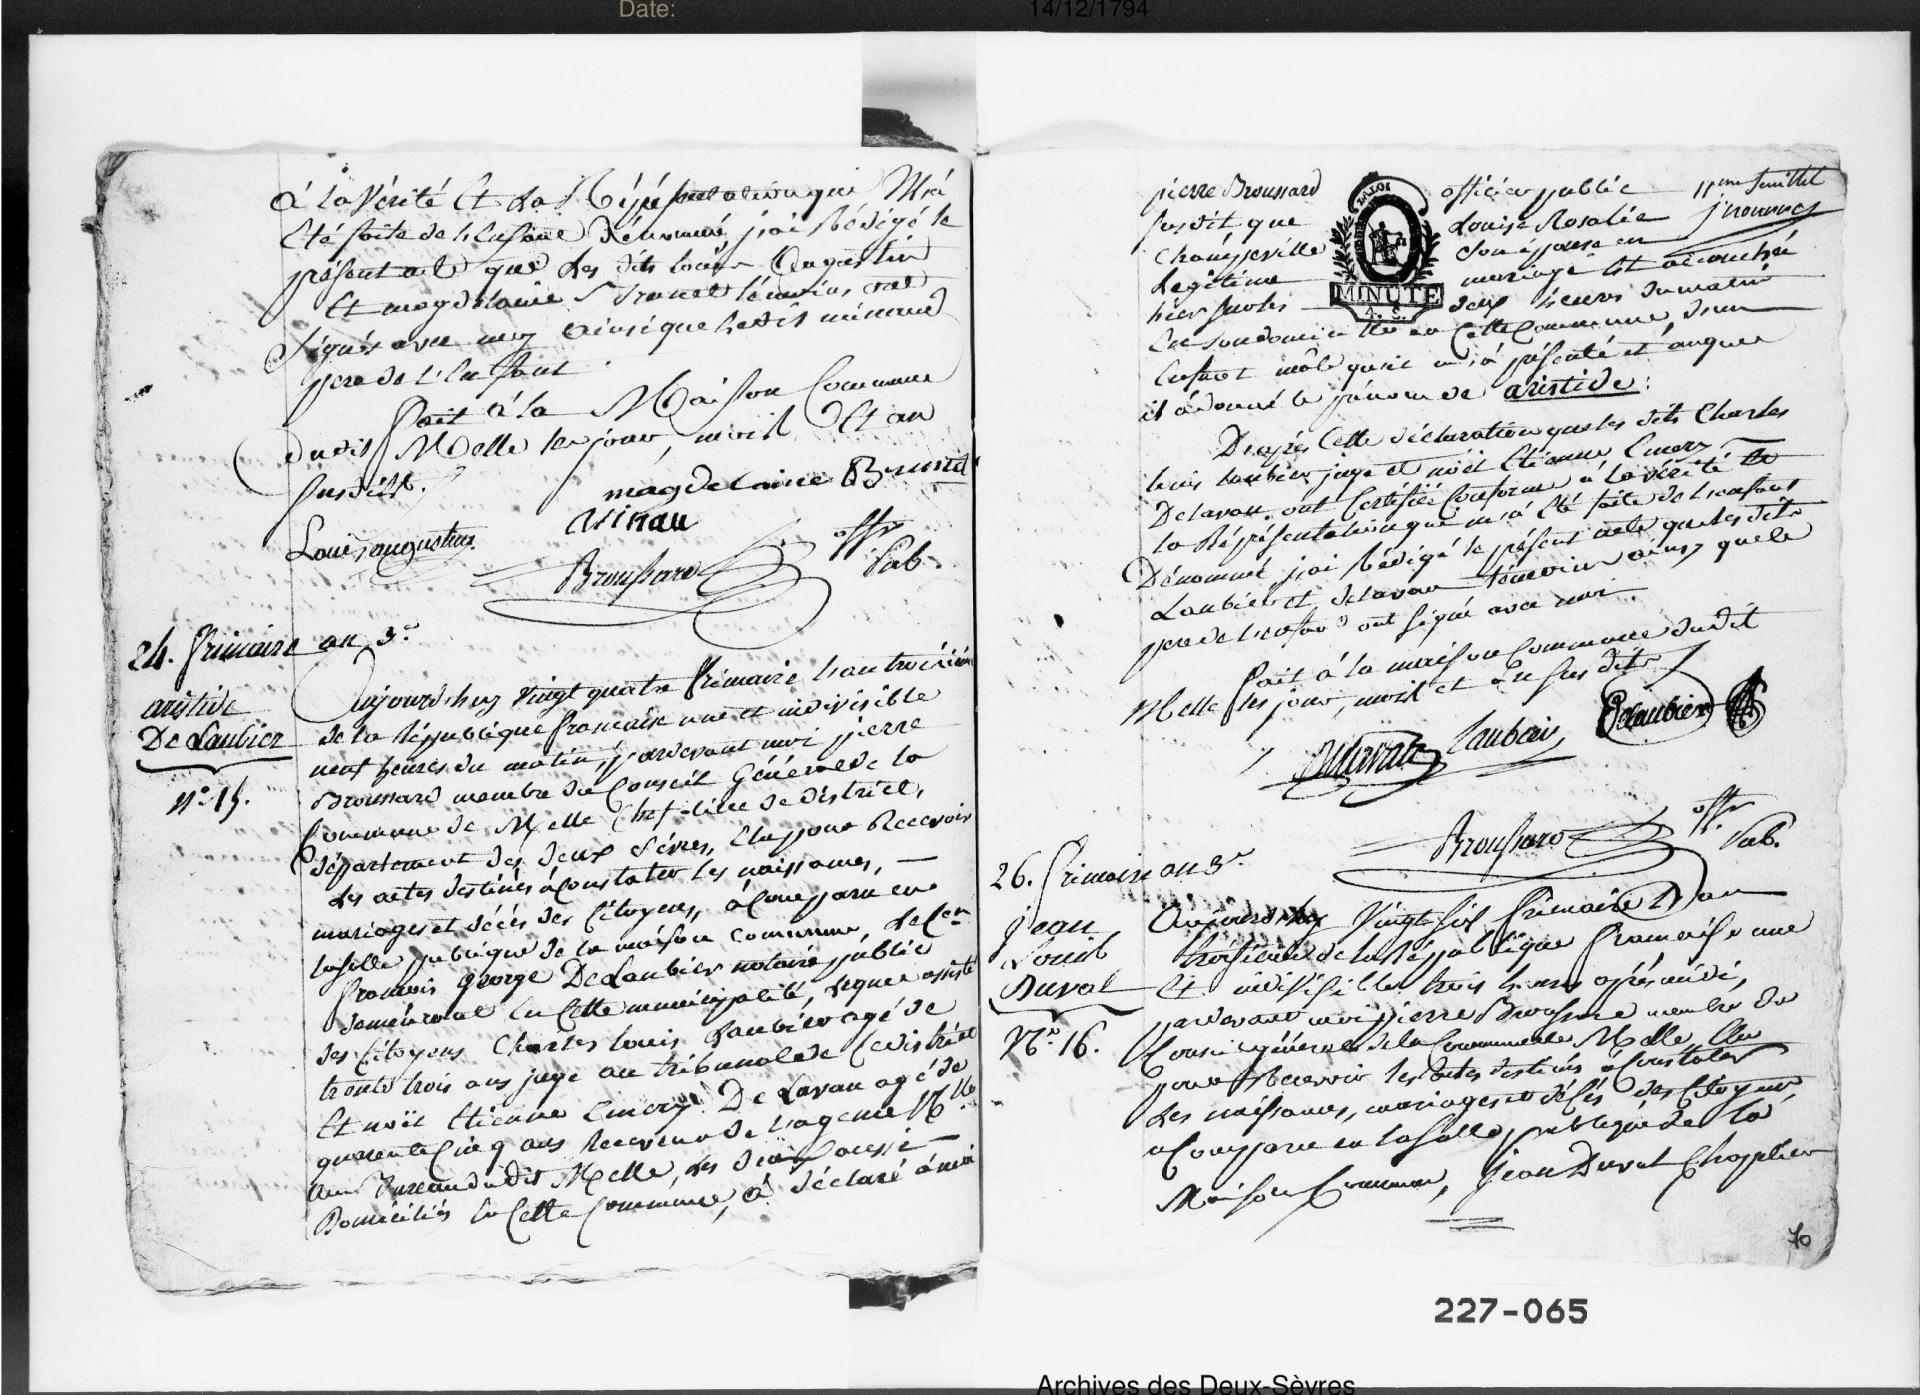 Date: 14/12/1794
à la Vérité Et La Répésentation qui M'a
Eté faite de L'Enfant Dénommé j'ai Rédigé le
présent acte que Les dits Louis Augustin
Et magdelaine Brunet témoins ont
Signés avec moy Ainsi que ledit
pere de L'Enfant
Fait à la Maison Commune
dudit Melle les jour, mois Et an
susdits.
magdelaine Brunet
Louis augustin
Broussard offr
Pub.
24. frimaire an 3e
aristide
De Laubier
No. 15.
Aujourd'huy Vingt quatre frimaire L'an troisième
de la République française une et indivisible
neuf heures du matin, pardevant moi pierre
Broussard membre du Conseil Général de la
Commune de Melle Chef-lieu de district,
département des deux Sévres, Elu pour Recevoir
Les actes destinés à Constater Les naissances,
mariages et décès des Citoyens, à Comparu en
la salle publique de la maison commune, Le Cen
francois george De Laubier notaire public
demeurant En Cette municipalité, Lequel assisté
des Citoyens Charles Louis Laubier agé de
trente trois ans juge au tribunal de Ce district
Et noël Etienne Emery De Lavau agé de
quarente Cinq ans Receveur de L'agence Nle
au Bureau dudit Melle, Les deux aussi
Domiciliés En Cette Commune, à déclaré à moi
pierre Broussard officier public
susdit que Louise Rosalie
Chamjeville son épouse en
Legitime mariage Est accouchée
hier sur les deux heures du matin
En son domicille en Cette Commune, d'un
Enfant mâle qu'il m'a présenté et auquel
il a donné le prénom de aristide:
11eme feuillet
LA LOI
MINUTE
D'après Cette déclaration que les dits Charles
Louis Laubier juge et noël Etienne Emery
Delavau, ont Certifiée Conforme à la vérité Et
la Réprésentation qui m'a Eté faite de L'enfant
Dénommé, j'ai Rédigé le présent acte que les dits
Laubier et delavau témoins ainsy que le
pere de L'enfant ont signé avec moi
Fait à la maison Commune dudit
Melle les jour, mois et an sus dits
Laubier Delaubier
Broussard offr
Pub.
26. frimaire an 3e
Jean
Louis
Duval
No. 16.
Aujourd'huy Vingt Six frimaire L'an
troisieme de la République française une
Et indivisible trois heures après midi,
pardevant moi pierre Broussard membre du
Conseil général de la Commune de Melle, Elu
pour Recevoir les actes destinés à Constater
Les naissances, mariages et décès des Citoyens
a Comparu en la Salle publique de la
Maison Commune, Jean Duval Chapelier
70
227-065
Archives des Deux-Sèvres